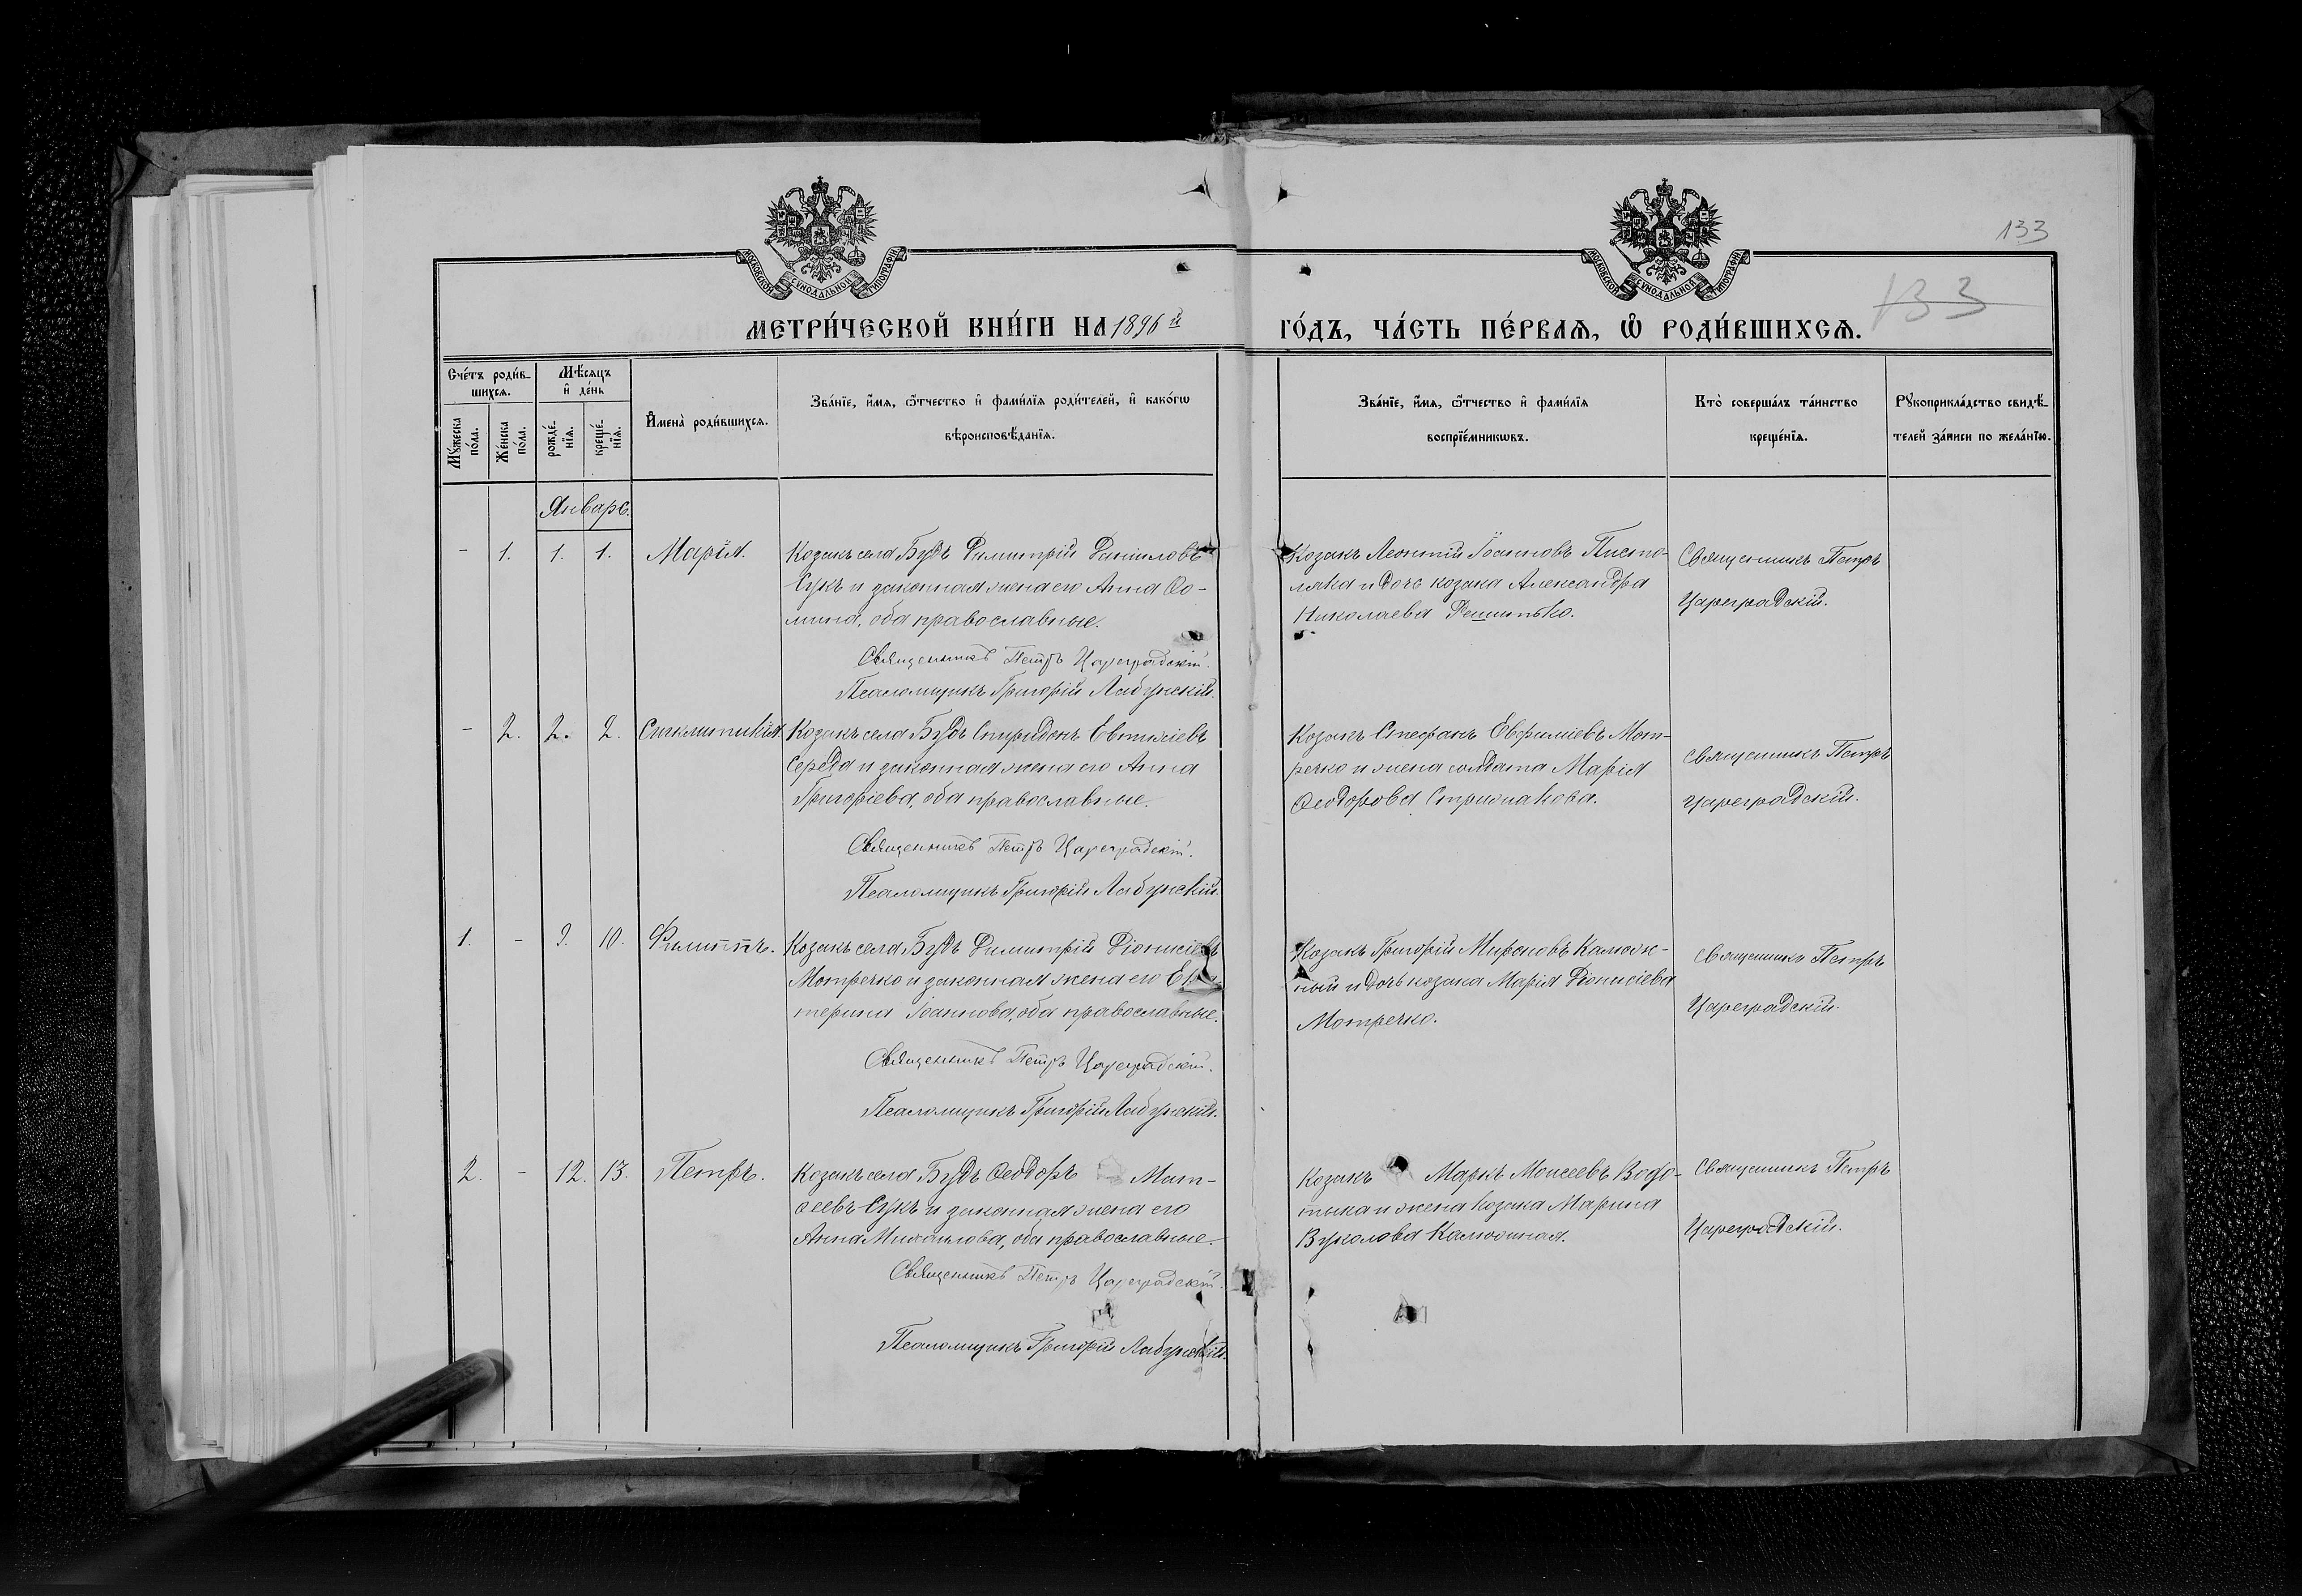 133
133
МОСКОВСКОЙ СѴНОДАЛЬНОЙ ТИПОГРАФІИ
МОСКОВСКОЙ СѴНОДАЛЬНОЙ ТИПОГРАФІИ
МЕТРИ́ЧЕСКОЙ КНИ́ГИ НА 1896й ГО́ДЪ, ЧА́СТЬ ПЕ́РВАѦ, Ѡ҆ РОДИ́ВШИХСѦ.
Сче́тъ роди́в-
шихсѧ.
Мꙋ́жеска
по́ла.
Же́нска
по́ла.
Мѣ́сѧцъ
и҆ де́нь
рожде́-
нїѧ.
креще́-
нїѧ.
И҆мена̀ роди́вшихсѧ.
Зва́нїе, и҆́мѧ, ѻ҆́тчество и҆ фами́лїѧ роди́телей, и҆ како́гѡ
вѣроисповѣ́данїѧ.
Зва́нїе, и҆́мѧ, ѻ҆́тчество и҆ фами́лїѧ
воспрїе́мникѡвъ.
Кто̀ соверша́лъ та́инство
креще́нїѧ.
Рꙋкоприкла́дство свидѣ́-
телей за́писи по жела́нїю.
Январь.
- 1. 1. 1. Марія.
Козакъ села Будъ Димитрій Даніиловъ
Сукъ и законная жена его Анна Ѳо-
мина, оба православные.
Священникъ Петръ Цареградскій.
Псаломщикъ Григорій Лабунскій.
Козакъ Леонтій Іоанновъ Писто-
ляка и дочь козака Александра
Николаева
Священникъ Петръ
Цареградскій.
- 2. 2. 2. Сигклитикія
Козакъ села Будъ Спиридонъ Евтихіевъ
Середа и законная жена его Анна
Григоріева, оба православные.
Священникъ Петръ Цареградскій.
Псаломщикъ Григорій Лабунскій.
Козакъ Стефанъ Евфиміевъ Мот-
речко и жена солдата Марія
Ѳеодорова Стрижакова.
Священникъ Петръ
Цареградскій.
1. - 9. 10. Филиппъ.
Козакъ села Будъ Димитрій Діонисіевъ
Мотречко и законная жена его Ека-
терина Іоаннова, оба православные.
Священникъ Петръ Цареградскій.
Псаломщикъ Григорій Лабунскій.
Козакъ Григорій Мироновъ Калюж-
ный и дочь козака Марія Діонисіева
Мотречко.
Священникъ Петръ
Цареградскій.
2. - 12. 13. Петръ.
Козакъ села Будъ Ѳеодоръ Мат-
ѳеевъ Сукъ и законная жена его
Анна Михаилова, оба православные.
Священникъ Петръ Цареградскій.
Псаломщикъ Григорій Лабунскій.
Козакъ Маркъ Моисеевъ
и жена козака Марина
Вуколова Калюжная.
Священникъ Петръ
Цареградскій.